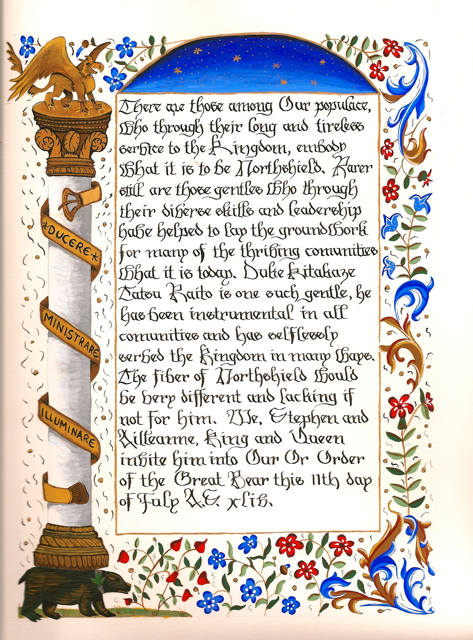 There are those among Our populace,
Who through their long and tireless
service to the Kingdom, embody
What it is to be Northshield. Rarer
still are those gentles Who through
their diverse skills and leadership
have helped to lay the groundWork
for many of the thriving comunities
What it is today. Duke Kitakaze
Tatsu Raito is one such gentle, he
has been instrumental in all
comunities and has selflessly
served the Kingdom in many Ways.
The fiber of Northshield Would
be very different and lacking if
not for him. We, Stephen and
Ailleanne, King and Queen
invite him into Our Or Order
of the Great Bear this 11th day
of July A.S. xliv.
DUCERE
MINISTRARE
ILLUMINARE